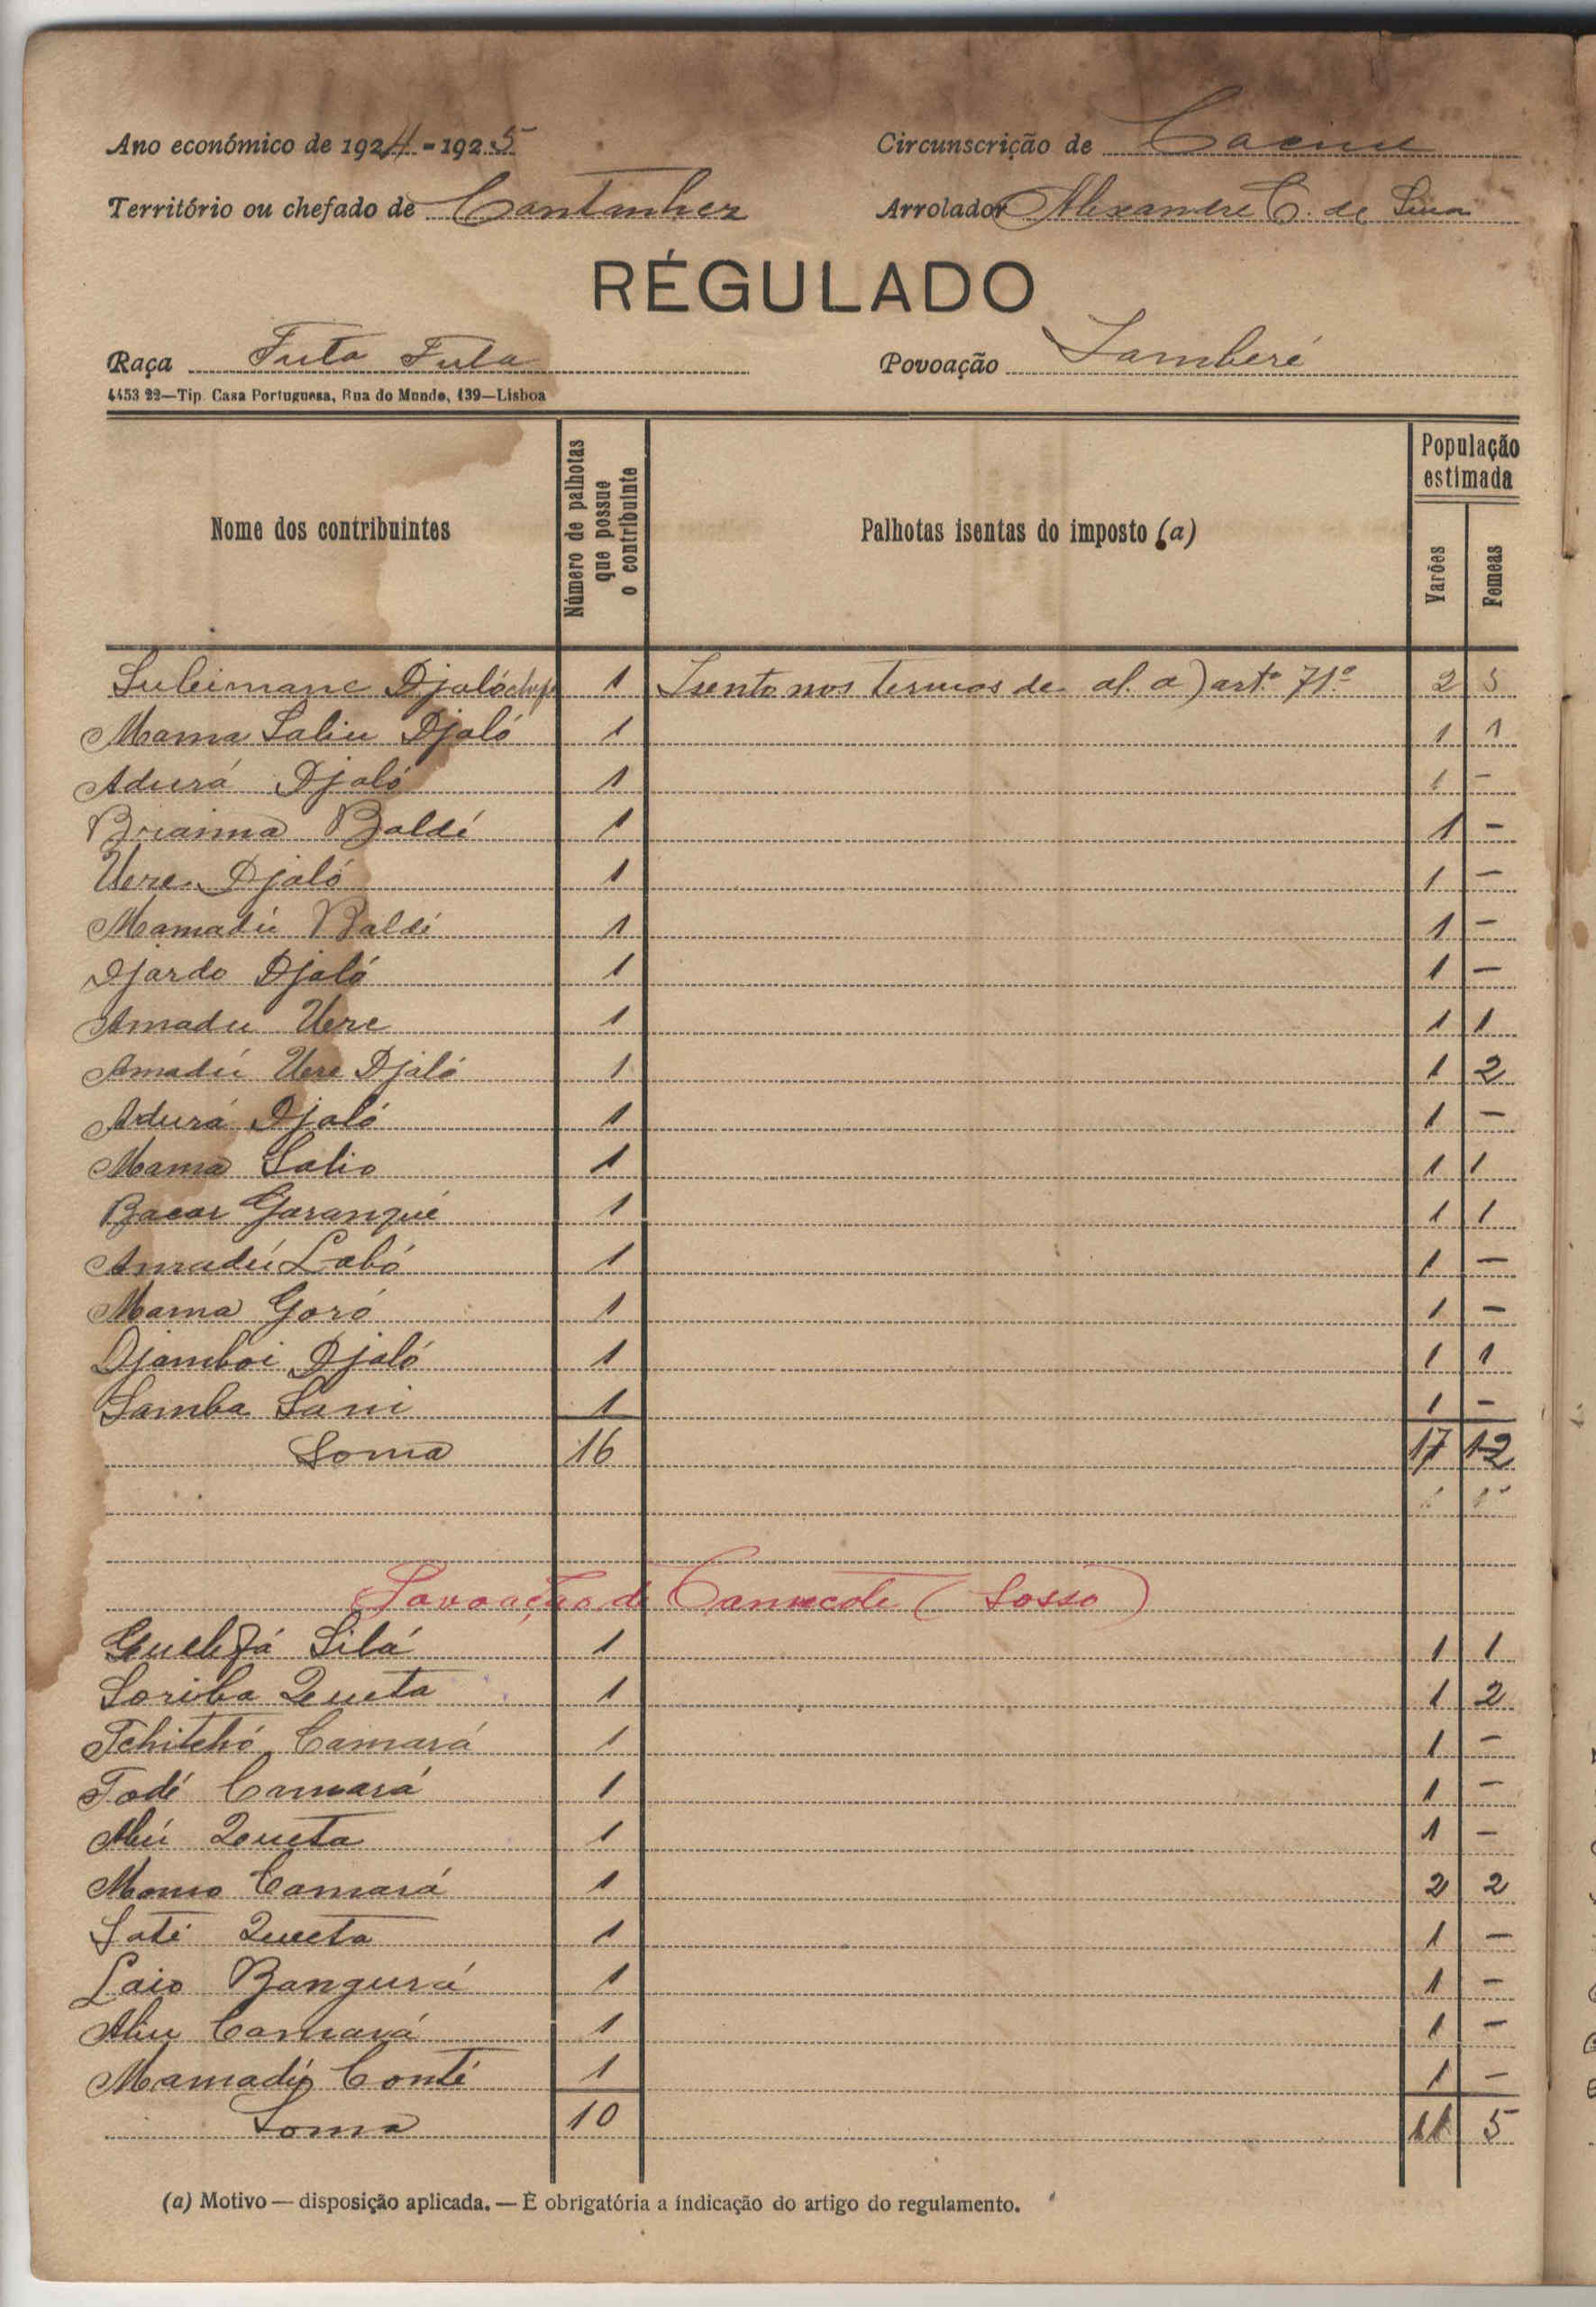 Ano económico de 1924-1925
Circunscrição de Cacine
Território ou chefado de Cantanhez
Arrolador Alexandre C. de Lima
RÉGULADO
Raça Futa Fula
Povoação Jamberé
4453 22—Tip. Casa Portuguesa, Rua do Mundo, 139—Lisboa
Nome dos contribuintes
Número de palhotas que possue o contribuinte
Palhotas isentas do imposto (a)
População estimada
Varões
Femeas
Suleimane Djaló chefe 1 Isento nos termos de al. a) artº 71º 2 5
Mama Saliu Djaló 1 1 1
Adurá Djaló 1 1 -
Braima Baldé 1 1 -
Uere Djaló 1 1 -
Mamadú Baldé 1 1 -
Djardo Djaló 1 1 -
Amadu Uere 1 1 1
Amadú Uere Djaló 1 1 2
Adurá Djaló 1 1 -
Mama Salio 1 1 1
Bacar Garanqué 1 1 1
Amadú Labó 1 1 -
Mama Goró 1 1 -
Djamboi Djaló 1 1 1
Samba Sani 1 1 -
Soma 16 17 12
Povoação de Camecote (Sosso)
Silá 1 1 1
Soriba Queta 1 1 2
Tchitchó Camará 1 1 -
Fodé Camará 1 1 -
Aliú Queta 1 1 -
Momo Camará 1 2 2
Sati Queta 1 1 -
Laio Bangurá 1 1 -
Aliu Camará 1 1 -
Mamadú Conté 1 1 -
Soma 10 11 5
(a) Motivo — disposição aplicada. — É obrigatória a indicação do artigo do regulamento.